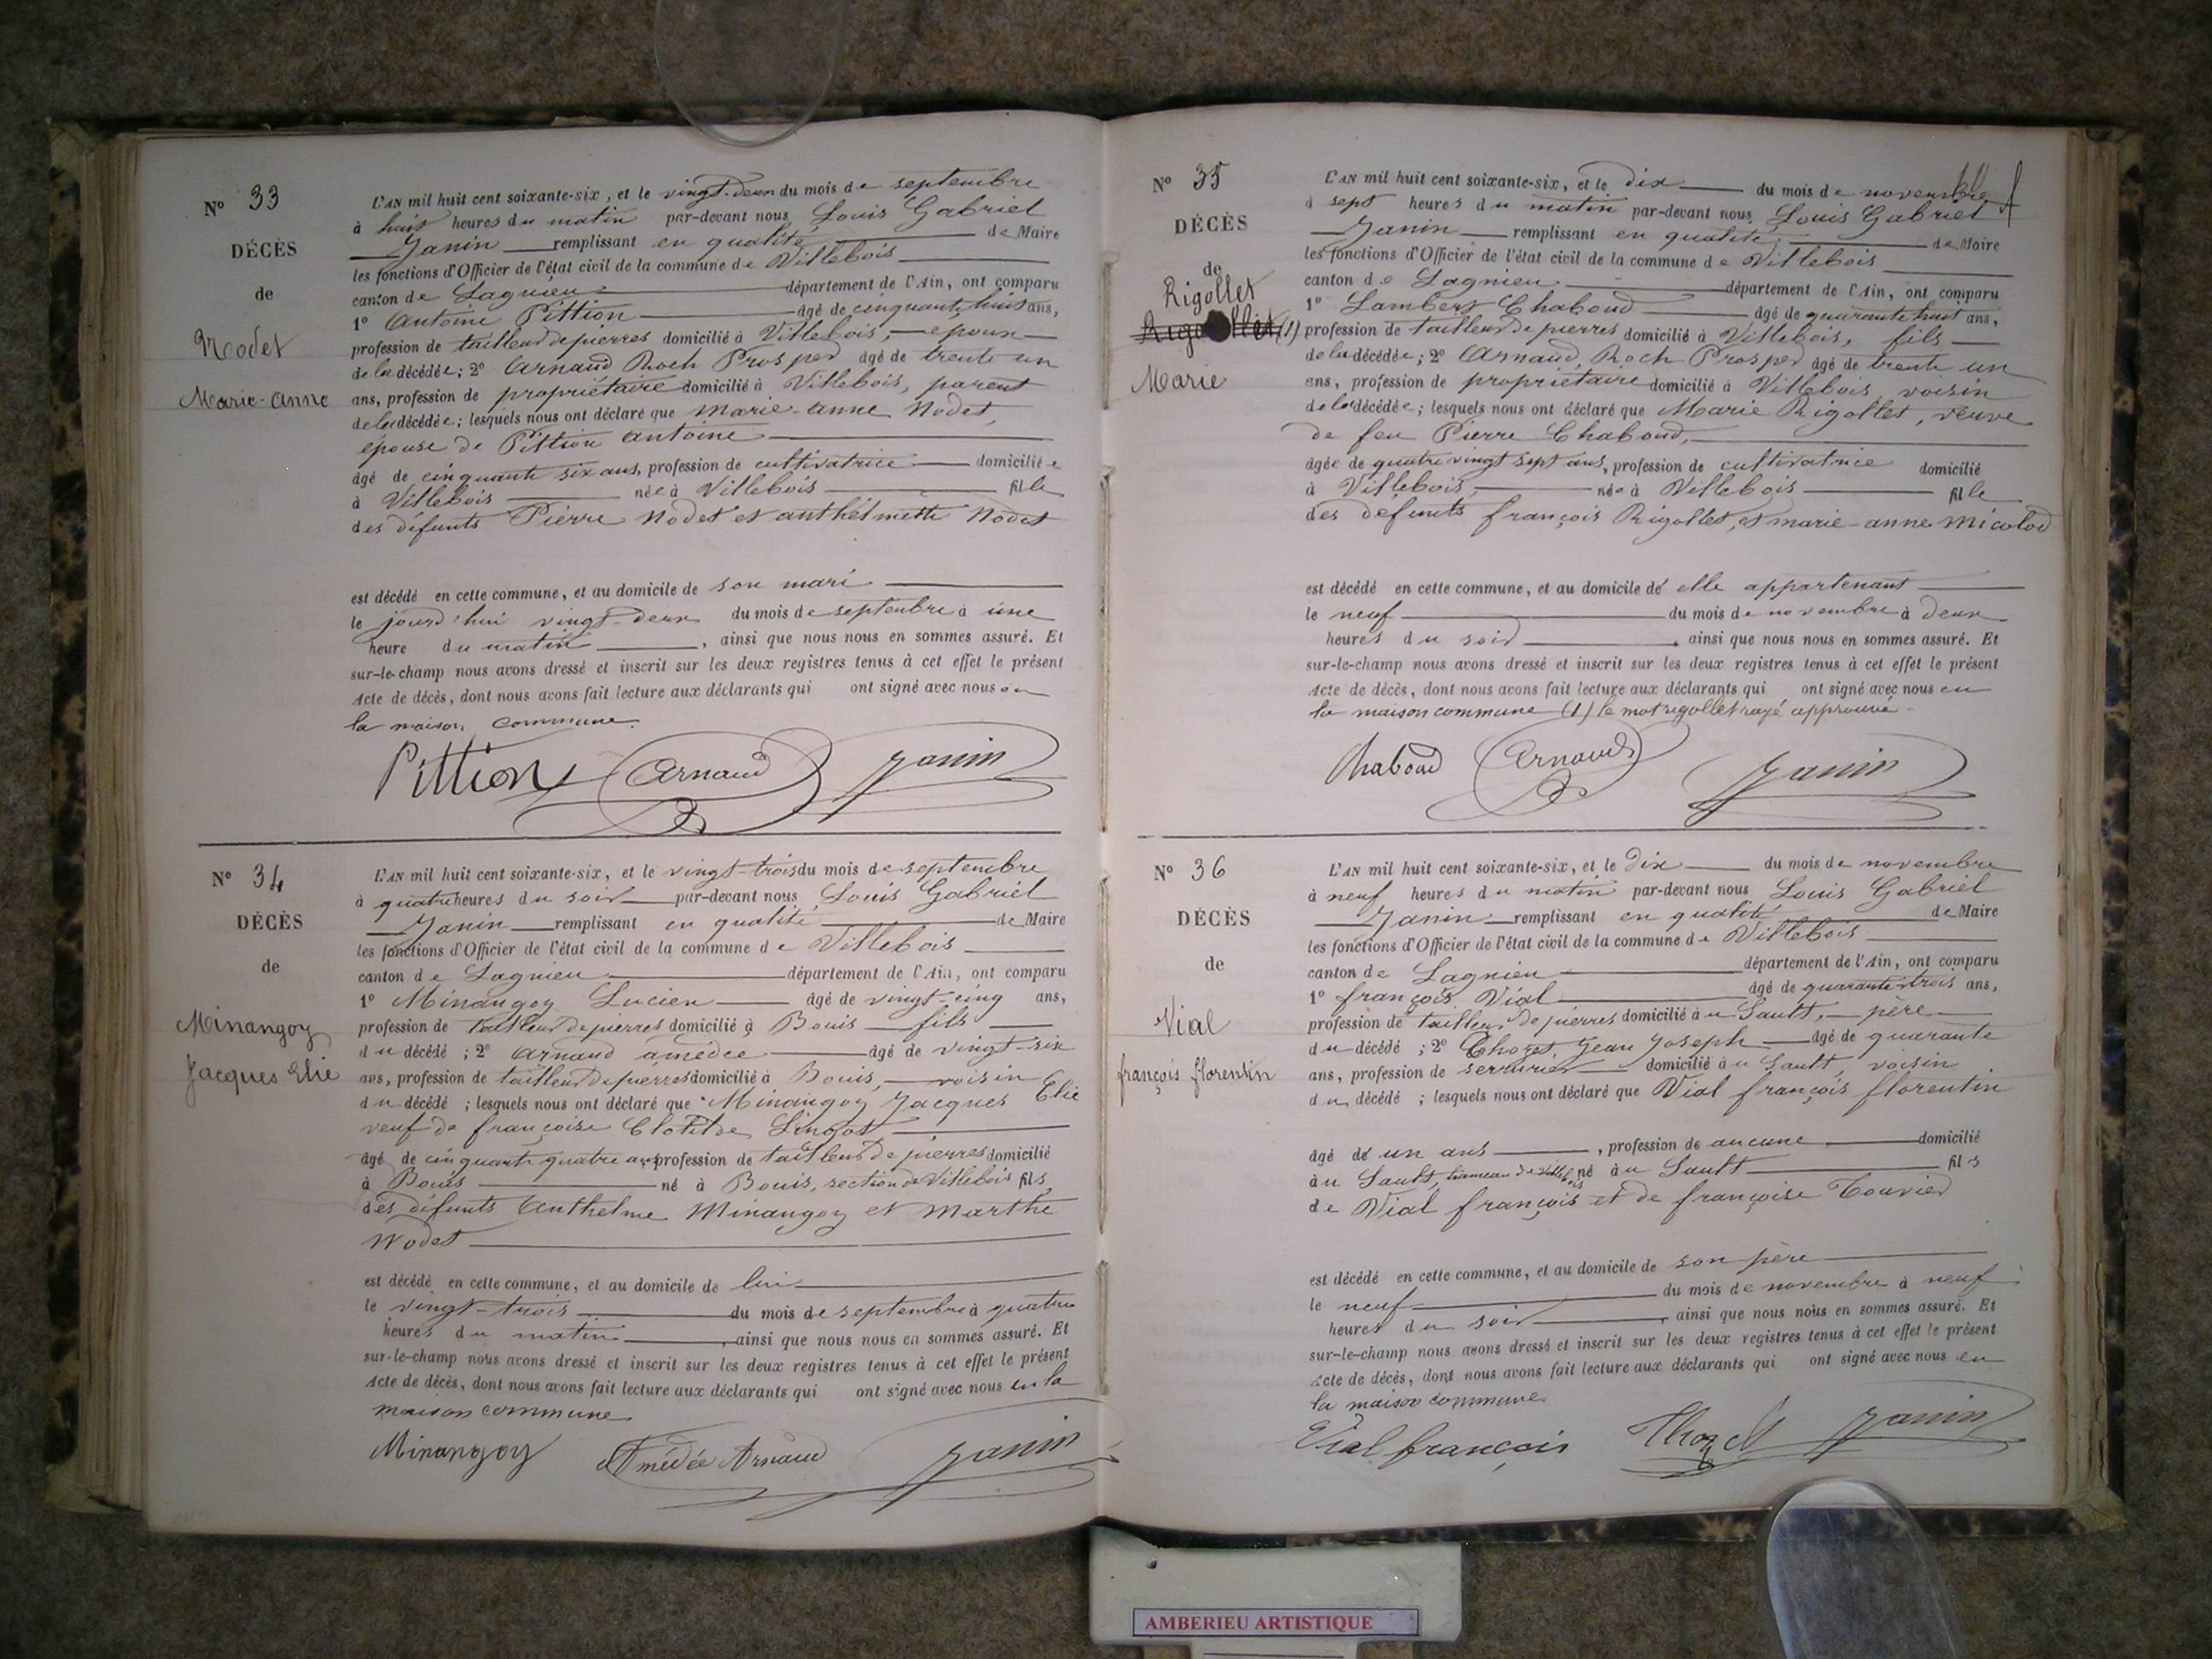 N° 33
DÉCÈS
de
Nodet
Marie-Anne
L'AN mil huit cent soixante-six, et le vingt-deux du mois de septembre
à huit heures du matin par-devant nous Louis Gabriel
Janin remplissant en qualité de Maire
les fonctions d'Officier de l'état civil de la commune de Villebois
canton de Lagnieu département de l'Ain, ont comparu
1° Antoine Pittion âgé de cinquante huit ans,
profession de tailleur de pierres domicilié à Villebois, époux
de la décédée; 2° Arnaud Roch Prosper âgé de trente un
ans, profession de propriétaire domicilié à Villebois, parent
de la décédée; lesquels nous ont déclaré que Marie-anne Nodet,
épouse de Pittion antoine
âgé de cinquante six ans, profession de cultivatrice domiciliée
à Villebois née à Villebois fille
des défunts Pierre Nodet et anthelmette Nodet
est décédé en cette commune, et au domicile de son mari
le jourd'hui vingt-deux du mois de septembre à une
heure du matin, ainsi que nous nous en sommes assuré. Et
sur-le-champ nous avons dressé et inscrit sur les deux registres tenus à cet effet le présent
Acte de décès, dont nous avons fait lecture aux déclarants qui ont signé avec nous en
la maison commune.
Pittion Arnaud Janin
N° 34
DÉCÈS
de
Minangoy
Jacques Elie
L'AN mil huit cent soixante-six, et le vingt-trois du mois de septembre
à quatre heures du soir par-devant nous Louis Gabriel
Janin remplissant en qualité de Maire
les fonctions d'Officier de l'état civil de la commune de Villebois
canton de Lagnieu département de l'Ain, ont comparu
1° Minangoy Lucien âgé de vingt-cinq ans,
profession de tailleur de pierres domicilié à Bouis fils
du décédé; 2° Arnaud amédée âgé de vingt-six
ans, profession de tailleur de pierres domicilié à Bouis, voisin
du décédé; lesquels nous ont déclaré que Minangoy Jacques Elie
veuf de françoise Clotilde
âgé de cinquante quatre ans profession de tailleur de pierres domicilié
à Bouis né à Bouis, section de Villebois fils
des défunts Anthelme Minangoy et Marthe
Nodet
est décédé en cette commune, et au domicile de lui
le vingt-trois du mois de septembre à quatre
heures du matin, ainsi que nous nous en sommes assuré. Et
sur-le-champ nous avons dressé et inscrit sur les deux registres tenus à cet effet le présent
Acte de décès, dont nous avons fait lecture aux déclarants qui ont signé avec nous en la
maison commune
Minangoy Amédée Arnaud Janin
N° 35
DÉCÈS
de
Rigollet
Rigollet (1)
Marie
L'AN mil huit cent soixante-six, et le dix du mois de novembre
à sept heures du matin par-devant nous Louis Gabriel
Janin remplissant en qualité de Maire
les fonctions d'Officier de l'état civil de la commune de Villebois
canton de Lagnieu département de l'Ain, ont comparu
1° Lambert Chaboud âgé de quarante huit ans,
profession de tailleur de pierres domicilié à Villebois, fils
de la décédée; 2° Arnaud, Roch Prosper âgé de trente un
ans, profession de propriétaire domicilié à Villebois voisin
de la décédée; lesquels nous ont déclaré que Marie Rigollet, veuve
de feu Pierre Chaboud,
âgée de quatre vingt sept ans, profession de cultivatrice domicilié
à Villebois, née à Villebois fille
des défunts françois Rigollet, et marie-anne Micolod
est décédé en cette commune, et au domicile de elle appartenant
le neuf du mois de novembre à deux
heures du soir, ainsi que nous nous en sommes assuré. Et
sur-le-champ nous avons dressé et inscrit sur les deux registres tenus à cet effet le présent
Acte de décès, dont nous avons fait lecture aux déclarants qui ont signé avec nous en
la maison commune (1) le mot rigollet rayé approuvé
Chaboud Arnaud Janin
N° 36
DÉCÈS
de
Vial
françois florentin
L'AN mil huit cent soixante-six, et le dix du mois de novembre
à neuf heures du matin par-devant nous Louis Gabriel
Janin remplissant en qualité de Maire
les fonctions d'Officier de l'état civil de la commune de Villebois
canton de Lagnieu département de l'Ain, ont comparu
1° françois Vial âgé de quarante trois ans,
profession de tailleur de pierres domicilié au Sault, père
du décédé; 2° Thozet, Jean Joseph âgé de quarante
ans, profession de serrurier domicilié au Sault, voisin
du décédé; lesquels nous ont déclaré que Vial françois florentin
âgé de un ans, profession de aucune domicilié
au Sault, hameau de Villebois né au Sault fils
de Vial françois et de françoise Touvier
est décédé en cette commune, et au domicile de son père
le neuf du mois de novembre à neuf
heures du soir, ainsi que nous nous en sommes assuré. Et
sur-le-champ nous avons dressé et inscrit sur les deux registres tenus à cet effet le présent
Acte de décès, dont nous avons fait lecture aux déclarants qui ont signé avec nous en
la maison commune
Vial françois Thozet Janin
AMBERIEU ARTISTIQUE